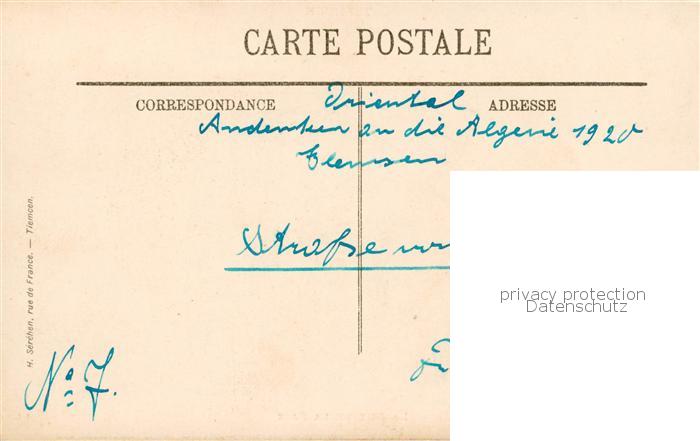 CARTE POSTALE
CORRESPONDANCE
ADRESSE
Oriental
Andenken an die Algerie 1920
Tlemsen
Straße
No 7.
H. Séréhen, rue de France. — Tlemcen.
privacy protection
Datenschutz